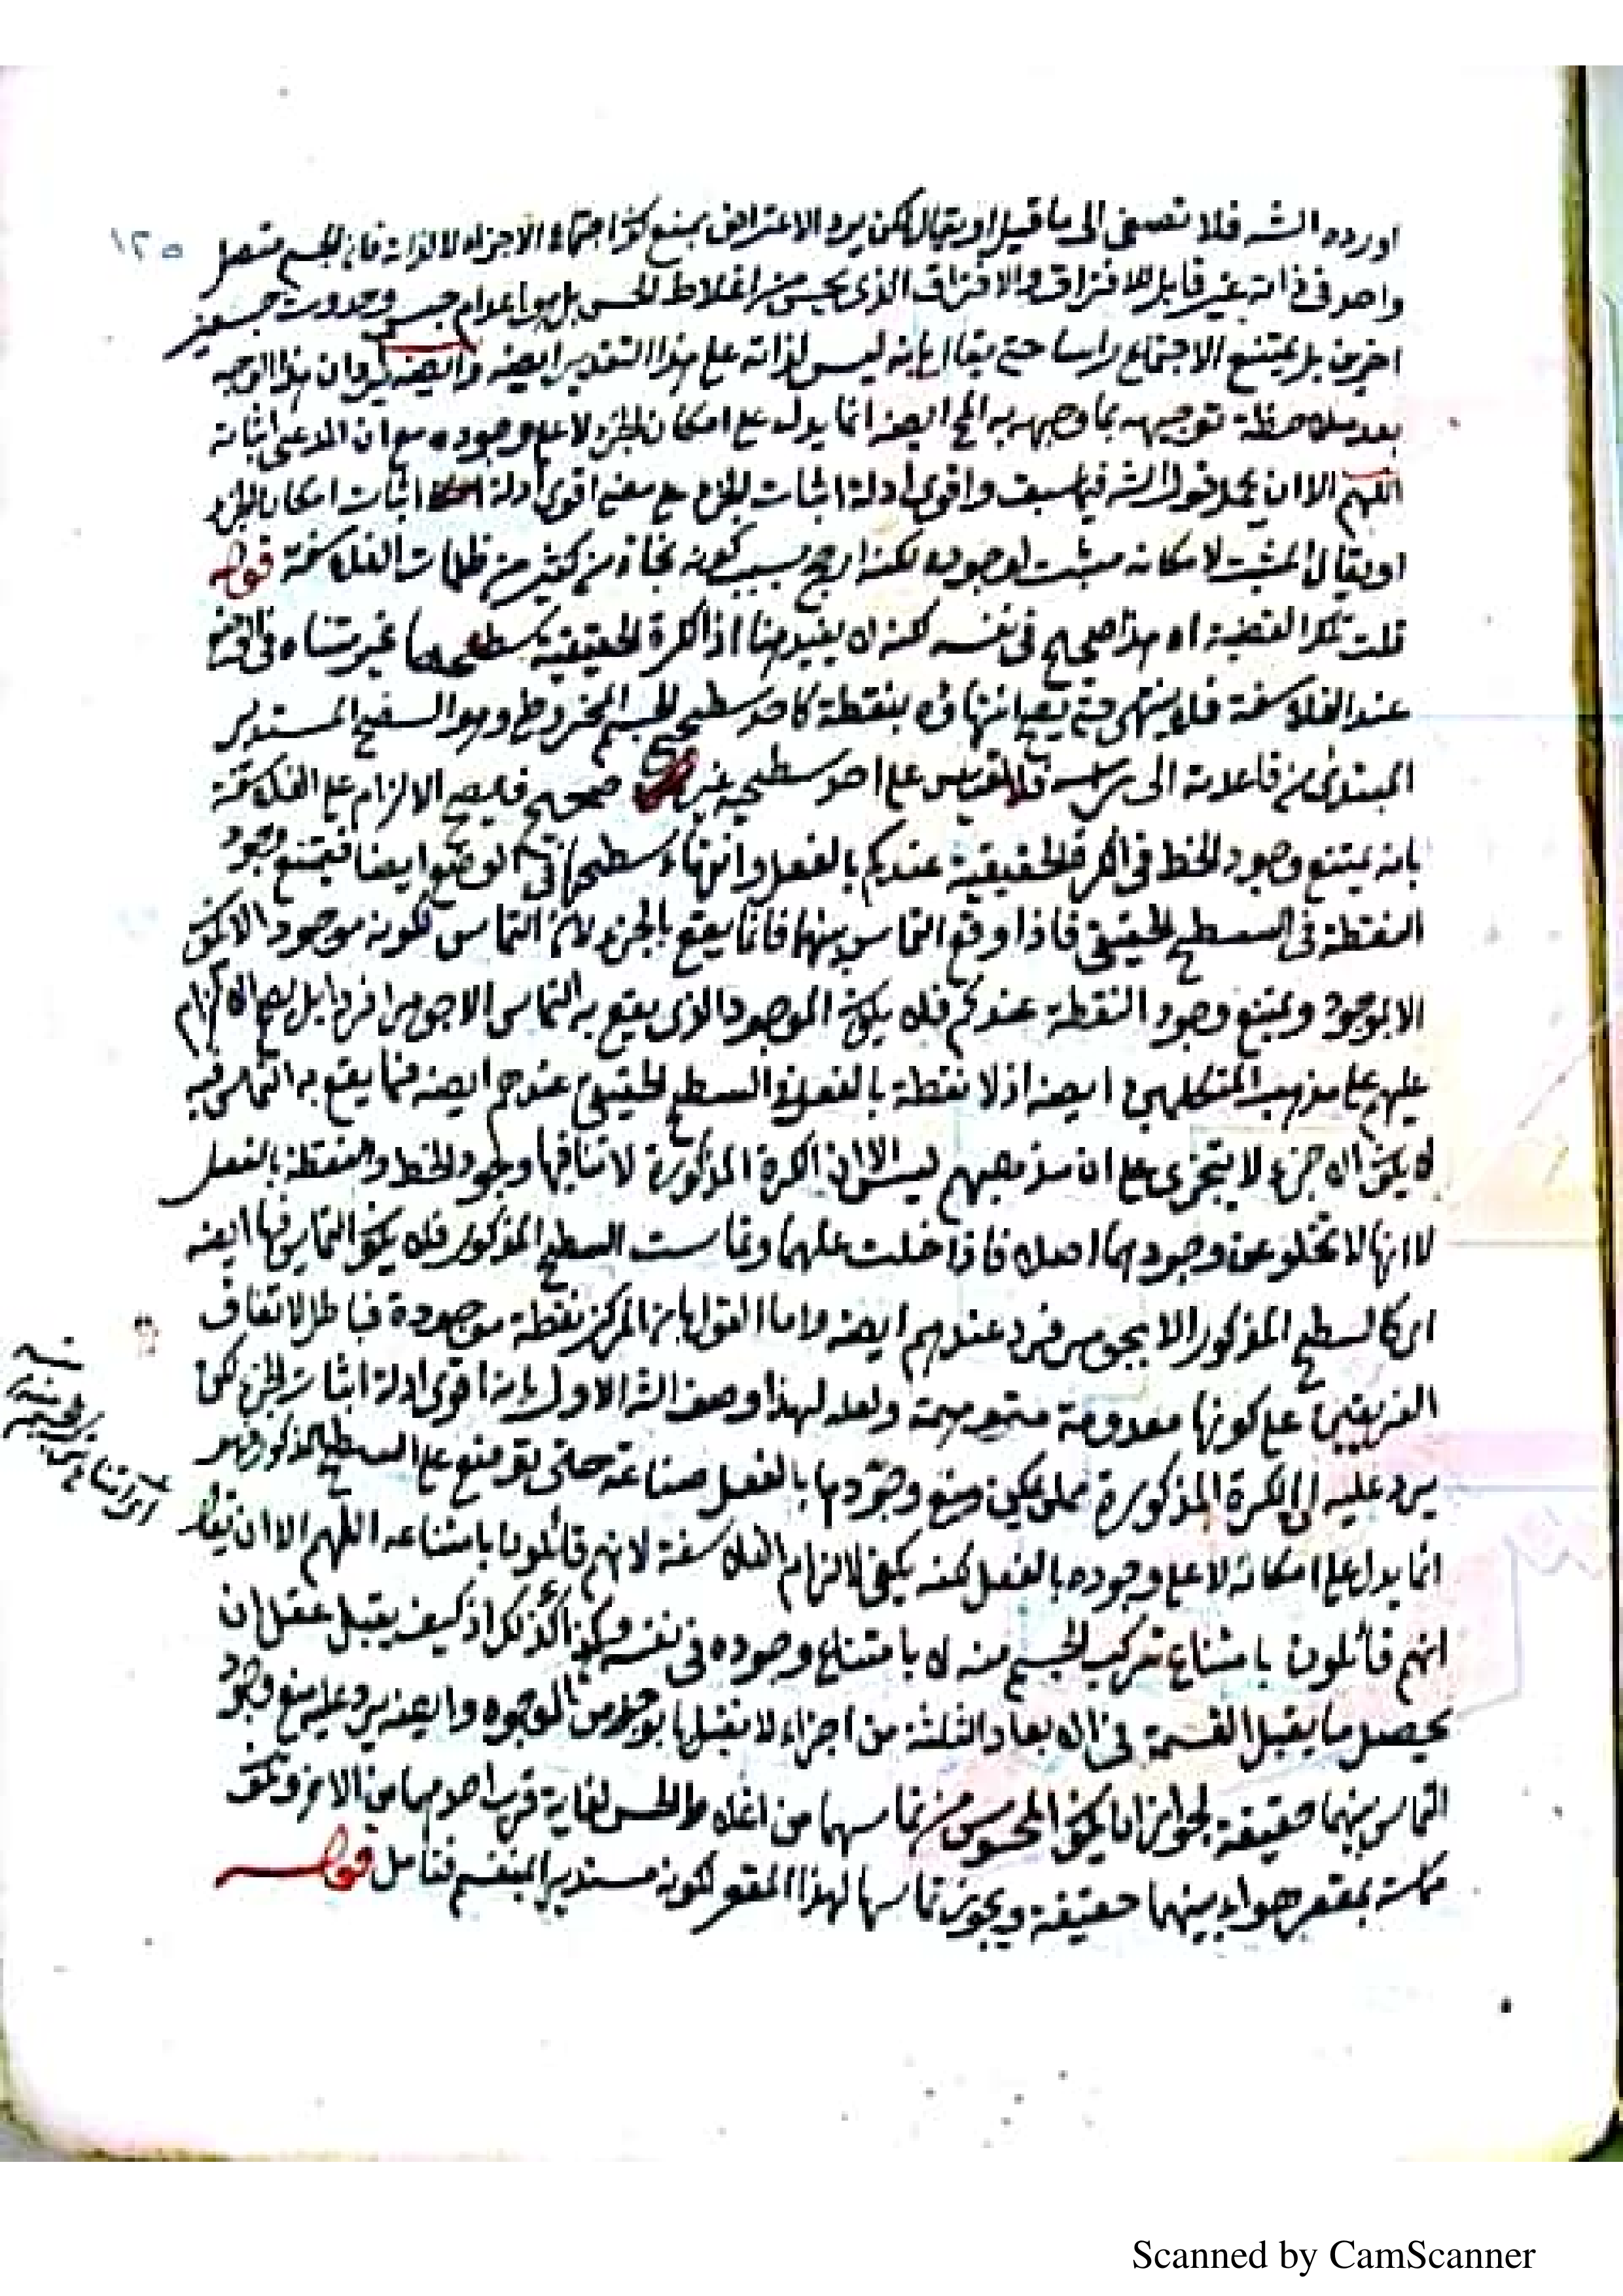 ١٢٥
اورده الشه فلا تصغى الى ما قيل او يقال لكن يرد الاعتراض بمنع كون اجتماع الاجزاء لا لذاته فان الجسم متصل
واحد فى ذاته غير قابل للافتراق والافتراق الذى يحس من اغلاط الحس بل هو اعدام جسم وحدوث جسمين
اخرين بل يمتنع الاجتماع راسا حتى يقال بانه ليس لذاته على هذا التقدير ايضه وايضه يرد ان هذا الوجه
بعد ملاحظة توجيهه بما وجهه به المح ايضه انما يدل على امكان الجزء لا على وجوده مع ان المدعى اثباته
اللهم الا ان يحمل قول الشه فيما سبق واقوى ادلة اثبات الجزء على معنى اقوى ادلة اثبات امكان الجزء
او يقال المثبت لامكانه مثبت لوجوده لكنه ارجح بسبب كونه نجاة من كثير من ظلمات الفلاسفة قوله
قلت تلك القضية اه هذا صحيح فى نفسه لكنه لا يفيد هنا اذ الكرة الحقيقية سطحها غير متناه فى الوضع
عند الفلاسفة فلا ينتهى حتى يصح انتهاؤه بنقطة كاحد سطحى الجسم المخروط وهو السطح المستدير
المبتدئ من قاعدته الى راسه فالقياس على احد سطحيه غير صحيح فيصح الالزام على الفلاسفة
بانه يمتنع وجود الخط فى الكرة الحقيقية عندكم بالفعل وانتهاء سطحها فى الوضع ايضا فيمتنع وجود
النقطة فى السطح الحقيقى فاذا وقع التماس بينهما فانما يقع بالجزء لان التماس لكونه موجود الا يكون
الا بالموجود ويمتنع وجود النقطة عندكم فلا يكون الموجود الذى يقع به التماس الا جوهرا فردا بل يصح الالزام
عليهم على مذهب المتكلمين ايضه اذ لا نقطة بالفعل فى السطح الحقيقى عندهم ايضه فما يقع به التماس فيه
لا يكون الا جزء لا يتجزى على ان مذهبهم ليس الا ان الكرة المذكورة لا تنافيها وجود الخط والنقطة بالفعل
لا انها لا تخلو عن وجودهما اصلا فاذا خلت عنهما وتماست السطح المذكور فلا يكون التماس فيها ايضه
اى كالسطح المذكور الا بجوهر فرد عندهم ايضه واما القول بان المركز نقطة موجودة فباطل لاتفاق
الفريقين على كونها معدومة متوهمة ولعل لهذا وصف الشه الاول بانه اقوى ادلة اثبات الجزء لكن
يرد عليه ان الكرة المذكورة مما يمكن منع وجودها بالفعل صناعة حتى توضع على السطح المذكور فهو
انما يدل على امكانه لا على وجوده بالفعل لكنه يكفى لالزام الفلاسفة لانهم قائلون بامتناعه اللهم الا ان يقال
انهم قائلون بامتناع تركب الجسم منه لا بامتناع وجوده فى نفسه وكذا اذ كيف يقبل عقل ان
يحصل ما يقبل القسمة فى الابعاد الثلثة من اجزاء لا تقبلها بوجه من الوجوه وايضه يرد عليه منع وجود
التماس بينهما حقيقة لجواز ان يكون المحسوس من تماسهما من اغلاط الحس لغاية قرب احدهما من الاخر وتكون
مماسة بمقعر هواء بينهما حقيقة ويجوز تماسها لهذا المقعر لكونه مستديرا لمنقسم فتأمل قوله